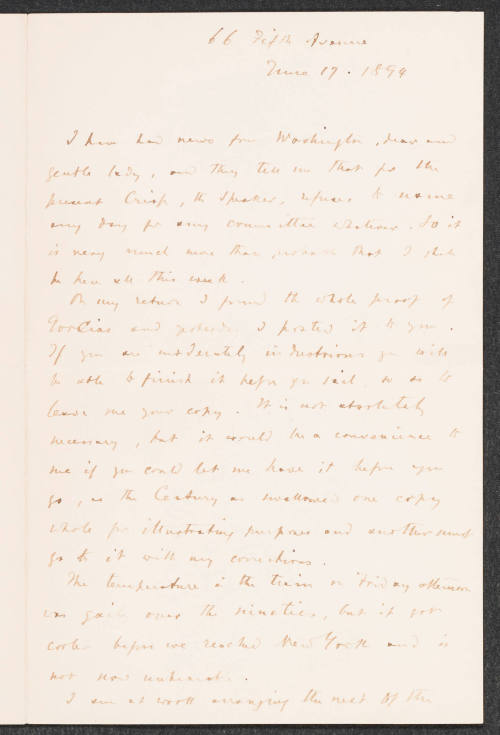 66 Fifth Avenue
June 17. 1894
I have had news from Washington, dear and
gentle lady, and they tell me that for the
present Crisp, the Speaker, refuses to name
any day for any committee whatever. So it
is very much more than probable that I shall
be here all this week.
On my return I found the whole proof of
and yesterday I posted it to you.
If you are moderately industrious you will
be able to finish it before you sail, so as to
leave me your copy. It is not absolutely
necessary, but it would be a convenience to
me if you could let me have it before you
go, as the Century has swallowed one copy
whole for illustrating purposes and another must
go to it with my corrections.
The temperature in the train on Friday afternoon
was gaily over the nineties, but it got
cooler before we reached New York and is
not now
I am at work arranging the rest of the